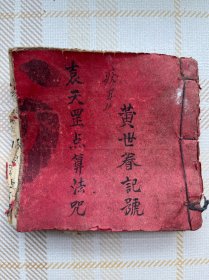 黄世春記號
袁天罡点算法咒